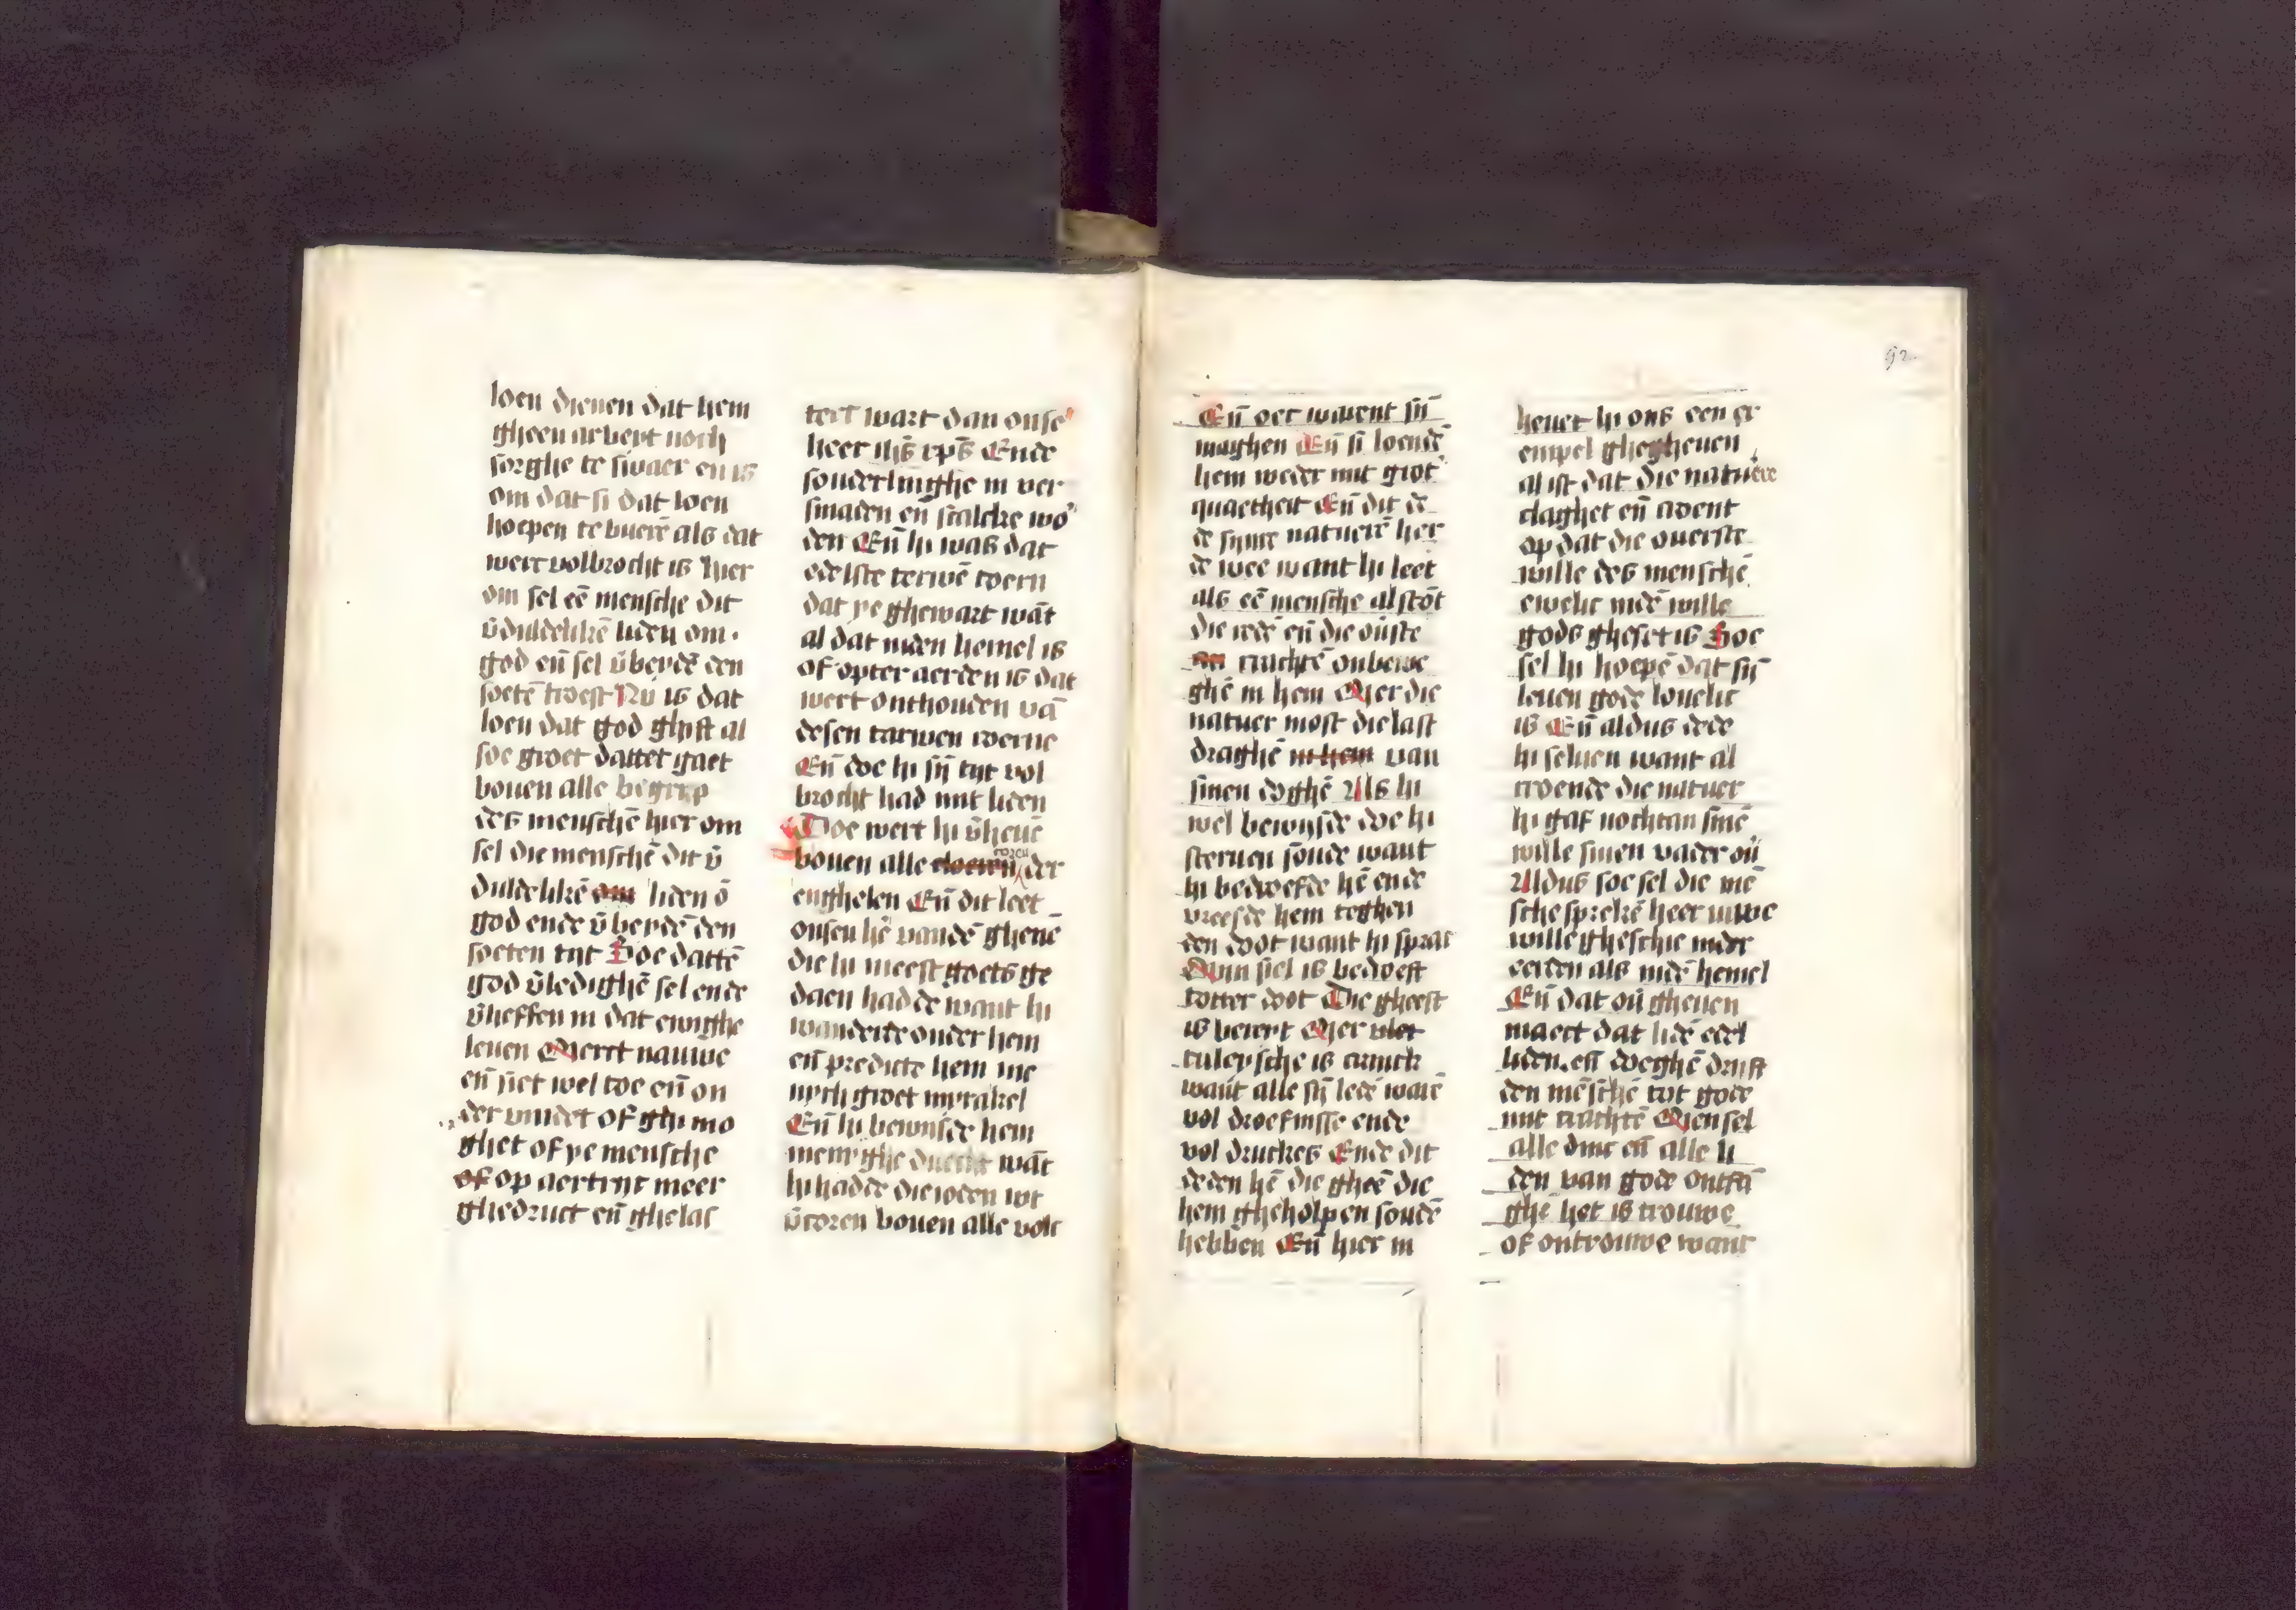 loen dienen dat hem
gheen arbeyt noch
sorghe te swaer en is
om dat si dat loen
hoepen te buerē als dat
werc volbrocht is hier
om sel eē mensche dit
v̄duldelikē liden om
god eñ sel v̄beydē den
soetē troest Nv is dat
loen dat god ghift al
soe groet dattet gaet
bouen alle begrip
des menschē hier om
sel die menschē dit v̄
duldelikē om liden ō
god ende v̄beydē den
soeten tijt Hoe dattē
god v̄ledighē sel ende
v̄heffen in dat ewighe
leuen Merct nauwe
eñ siet wel toe eñ on
der vindet of ghi mo
ghet of ye mensche
of op aertrijc meer
ghedruct eñ ghelas
teert wart dan onse
heer ihs̄ xp̄s Ende
sonderlinghe in ver
smaden eñ scalcke wo
den Eñ hi was dat
edelste terwē coern
dat ye ghewart wāt
al dat inden hemel is
of opter aerden is dat
wert onthouden vā
desen tarwen coerne
Eñ doe hi sijn tijt vol
brocht had mit liden
Doe wert hi v̄heuē
coren
bouen alle der
enghelen Eñ dit leet
onsen hē vandē ghenē
die hi meest goets ge
daen hadde want hi
wanderde onder hem
eñ predicte hem me
nich groet myrakel
Eñ hi bewijsde hem
menighe duecht wāt
hi hadde die ioden wt
v̄coren bouen alle volc
92
Eñ oec warent sijn
maghen Eñ si loendē
hem weder mit grot
quaetheit Eñ dit de
de sijnre natuerē her
de wee want hi leet
als eē mensche al stōt
die redē eñ die ou̅ste
crachtē onbewe
ghē in hem Mer die
natuer most die last
draghē in hem van
sinen doghē Als hi
wel bewijsde doe hi
steruen soude want
hi bedroefde hē ende
vreesde hem teghen
den doot want hi sprac
Mijn siel is bedroeft
totter doot Die gheest
is bereyt Mer
vleysche is cranck
want alle sijn ledē warē
vol droefnisse ende
vol druckes Ende dit
deden hē die gheē die
hem gheholpen soudē
hebben Eñ hier in
heuet hi ons een ex
empel ghegheuen
al ist dat die natuere
claghet eñ croent
op dat die ouerste
wille des menschē
ewelic indē wille
gods gheset is Hoe
sel hi hoepē dat sijn
leuen gode louelic
is Eñ aldus dede
hi seluen want al
croende die natuer
hi gaf nochtan sinē
wille sinen vader ou̅
Aldus soe sel die mē
sche sprekē heer uwe
wille gheschie inder
eerden als indē hemel
Eñ dat ou̅ gheuen
maect dat lidē edel
liden eñ doeghē drijft
den mēschē tot gode
mit crachtē Men sel
alle dinc eñ alle li
den van gode ontfā
ghē het is trouwe
of ontrouwe want